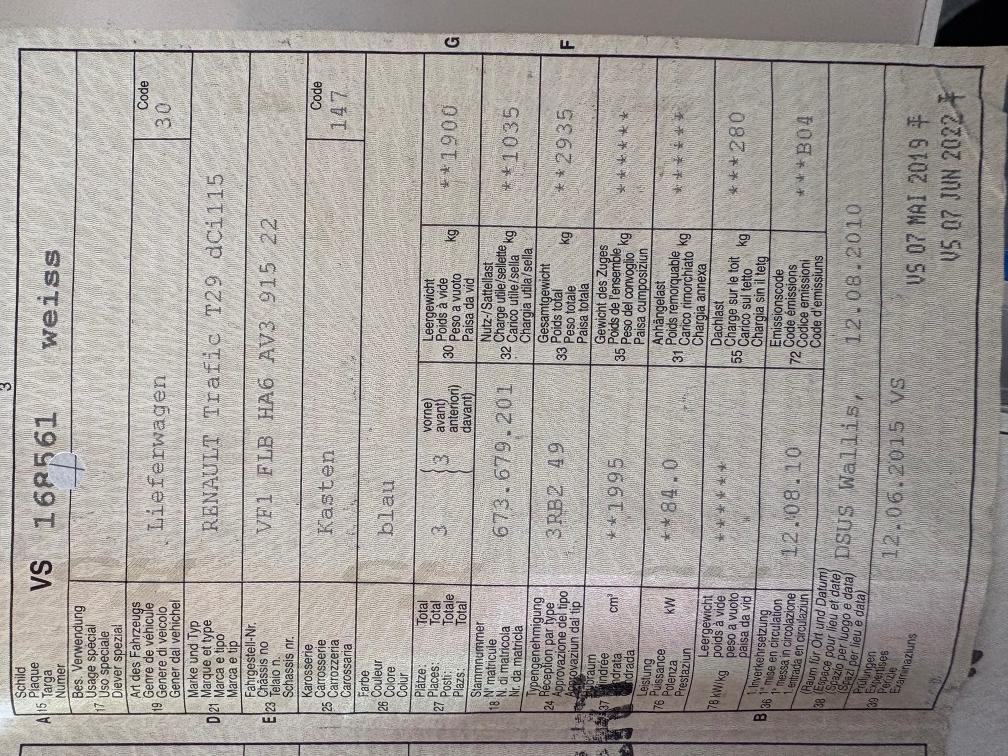 3
A 15 Schild
Plaque
Targa
Numer
VS 168561 weiss
17 Bes. Verwendung
Usage spécial
Uso speciale
Diever spezial
19 Art des Fahrzeugs
Genre de véhicule
Genere di veicolo
Gener dal vehichel
Lieferwagen
Code
30
D 21 Marke und Typ
Marque et type
Marca e tipo
Marca e tip
RENAULT Trafic T29 dCi115
E 23 Fahrgestell-Nr.
Châssis no
Telaio n.
Schassis nr.
VF1 FLB HA6 AV3 915 22
25 Karosserie
Carrosserie
Carrozzeria
Carossaria
Kasten
Code
147
26 Farbe
Couleur
Colore
Colur
blau
27 Plätze: Total
Places: Total
Posti: Totale
Plazs: Total
3
3
vorne)
avant)
anteriori)
davant)
30 Leergewicht
Poids à vide
Peso a vuoto kg
Paisa da vid
**1900
G
18 Stammnummer
N° matricule
N. di matricola
Nr. da matricla
673.679.201
32 Nutz-/Sattellast
Charge utile/sellette
Carico utile/sella kg
Chargia utila/sella
**1035
24 Typengenehmigung
Réception par type
Approvazione del tipo
Approvaziun dal tip
3RB2 49
33 Gesamtgewicht
Poids total
Peso totale kg
Paisa totala
**2935
F
37
cm³
**1995
35 Gewicht des Zuges
Poids de l'ensemble
Peso del convoglio kg
Paisa cumposiziun
******
76 Leistung
Puissance
Potenza kW
Prestaziun
**84.0
31 Anhängelast
Poids remorquable
Carico rimorchiato kg
Chargia annexa
******
78 kW/kg Leergewicht
poids à vide
peso a vuoto
paisa da vid
******
55 Dachlast
Charge sur le toit
Carico sul tetto kg
Chargia sin il tetg
***280
B 36 1. Inverkehrsetzung
1re mise en circulation
1a messa in circolazione
1. entrada en circulaziun
12.08.10
72 Emissionscode
Code émissions
Codice emissioni
Code d'emissiuns
***B04
38 (Raum für Ort und Datum)
(Espace pour lieu et date)
(Spazio per luogo e data)
(Spazi per lieu e data)
DSUS Wallis, 12.08.2010
39 Prüfungen
Expertises
Perizie
Examinaziuns
12.06.2015 VS
VS 07 MAI 2019
VS 07 JUN 2022